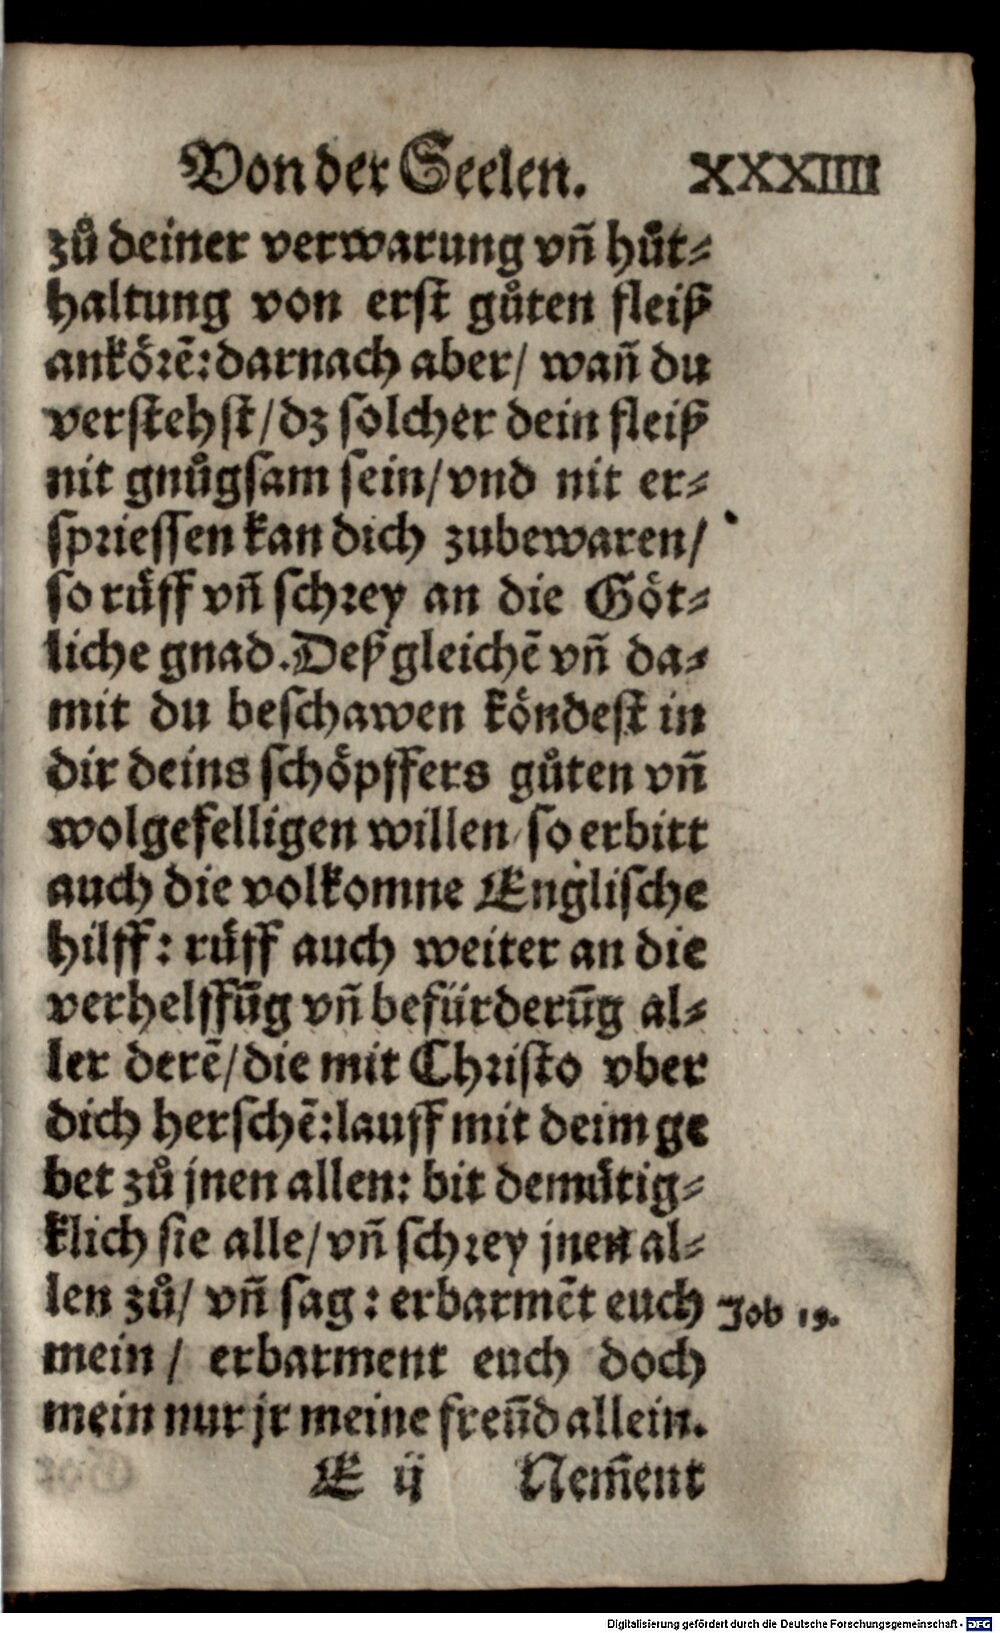 Von der Seelen. XXXIIII
zů deiner verwarung vñ hůt⸗
haltung von erst gůten fleiß
ankörē: darnach aber/ wañ du
verstehst/ dz solcher dein fleiß
nit gnůgsam sein/ vnd nit er⸗
spriessen kan dich zubewaren/
so rüff vñ schrey an die Göt⸗
liche gnad. Deß gleichē vñ da⸗
mit du beschawen köndest in
dir deins schöpffers gůten vñ
wolgefelligen willen/ so erbitt
auch die volkomne Englische
hilff: rüff auch weiter an die
verhelffūg vñ befürderūg al⸗
ler derē/ die mit Christo vber
dich herschē: lauff mit deim ge
bet zů jnen allen: bit demütig⸗
klich sie alle/ vñ schrey jnen al⸗
len zů/ vñ sag: erbarmēt euch Job 19.
mein/ erbarment euch doch
mein nur jr meine freūd allein.
E ij Nem̄ent
Digitalisierung gefördert durch die Deutsche Forschungsgemeinschaft - DFG